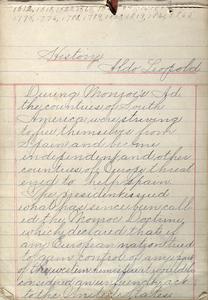 History
Aldo Leopold
During Monroe's Ad
the countries of South
America were striving
to free themselvs from
Spain and become
independent and other
countries of Europe threat
ened to help Spain
The President issued
what has since been call
ed the Monroe Doctrine,
which declared that if
any European nation tried
to gain control of any part
of the western hemisphere it would be
considered an unfriendly act
to the United States